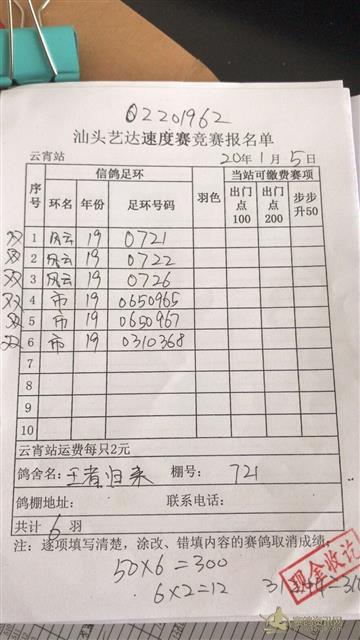 02201962
汕头艺达速度赛竞赛报名单
云宵站 20年1月5日
序号 信鸽足环 羽色 当站可缴费赛项
环名 年份 足环号码 出门点100 出门点200 步步升50
双 1 风云 19 0721
双 2 风云 19 0722
双 3 风云 19 0726
双 4 市 19 0650965
双 5 市 19 0650967
双 6 市 19 0310368
7
8
9
10
云宵站运费每只2元
鸽舍名：王者归来 棚号：721
鸽棚地址： 联系电话：
共计 6 羽
注：逐项填写清楚，涂改、错填内容的赛鸽取消成绩；
50×6=300
6×2=12
现金收讫